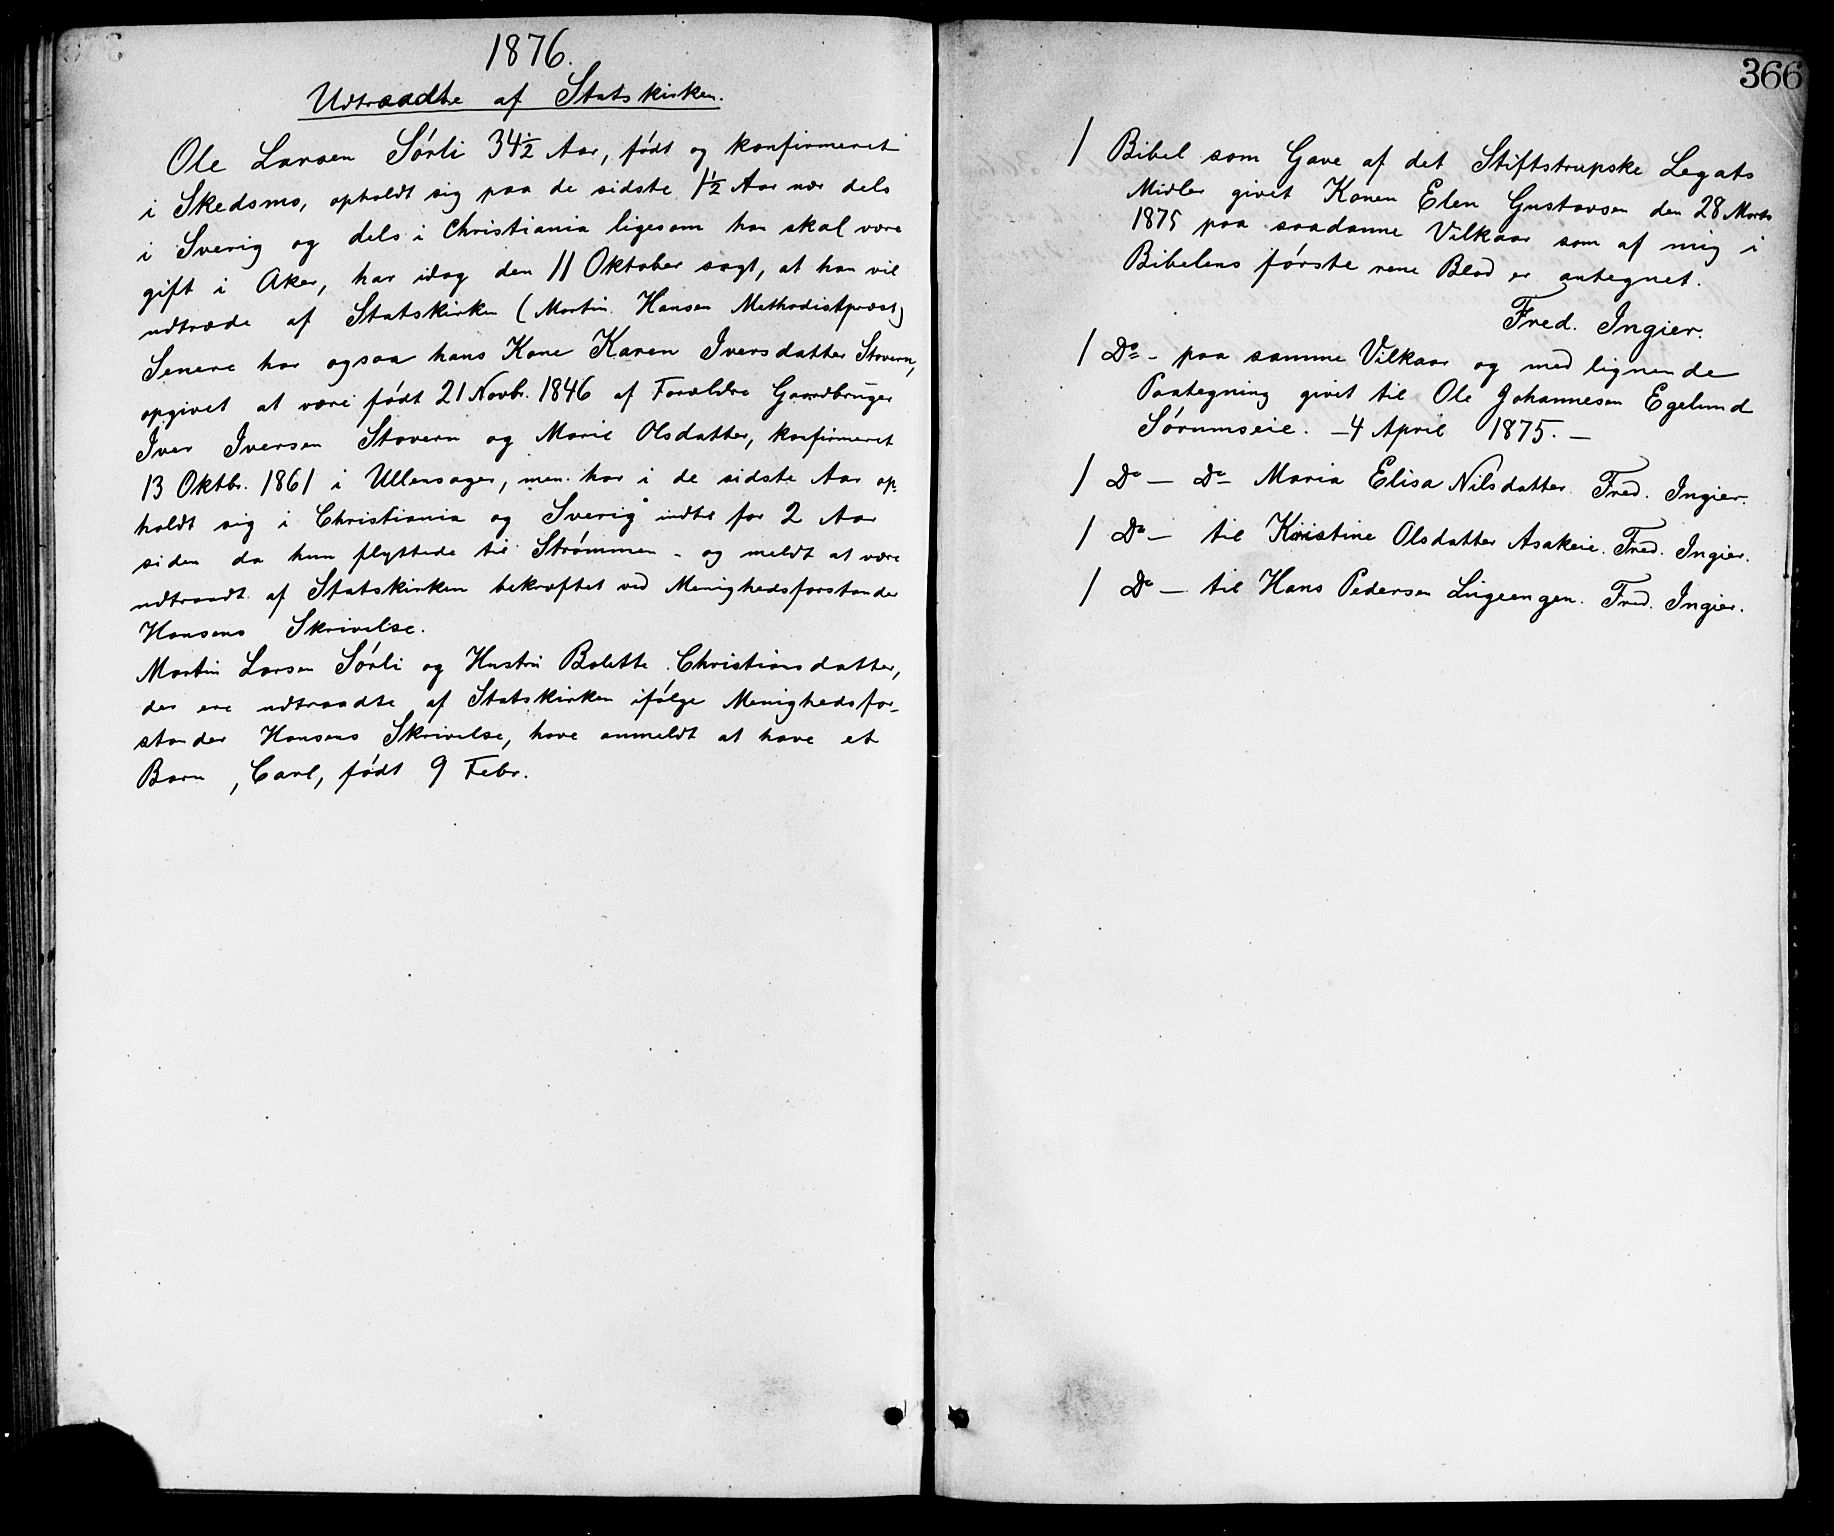 1876.
Udtraadte af Statskirken.
Ole Larsen Sórli 34½ Aar, fódt og konfirmeret
i Skedsmo, opholdt sig paa de sidste 1½ Aar nær dels
i Sverig og dels i Christiania ligesom han skal være
gift i Aker, har idag den 11 Oktober sagt, at han vil
udtræde af Statskirken (Martin Hansen Methodistpræst)
Senere har ogsaa hans Kone Karen Iversdatter Stovern,
opgivet at være født 21 Novbr. 1846 af Forældre Gaardbruger
Iver Iversen Stovern og Marie Olsdatter, konfirmeret
13 Oktbr. 1861 i Ullensager, men har i de sidste Aar op-
holdt sig i Christiania og Sverig indtil for 2 Aar
siden da hun flyttede til Strømmen - og meldt at være
udtraadt af Statskirken bekræftet ved Menighedsforstander
Hansens Skrivelse.
Martin Larsen Sórli og Hustru Bolette Christiansdatter,
der ere udtraadte af Statskirken ifólge Menighedsfor-
stander Hansens Skrivelse, have anmeldt at have et
Barn, Carl, fódt 9 Febr.
366
1 Bibel som Gave af det Stiftstrupske Legats
Midler givet Konen Elen Gustavsen den 28 Marts
1875 paa saadanne Vilkaar som af mig i
Bibelens fórste rene Blad er antegnet.
Fred. Ingier.
1 Do - paa samme Vilkaar og med lignende
Paategning givet til Ole Johannesen Egelund
Sórumseie. - 4 April 1875. -
1 Do - Do Maria Elisa Nilsdatter Fred. Ingier.
1 Do - til Kristine Olsdatter Asakeie. Fred. Ingier.
1 Do - til Hans Pedersen Fred. Ingier.